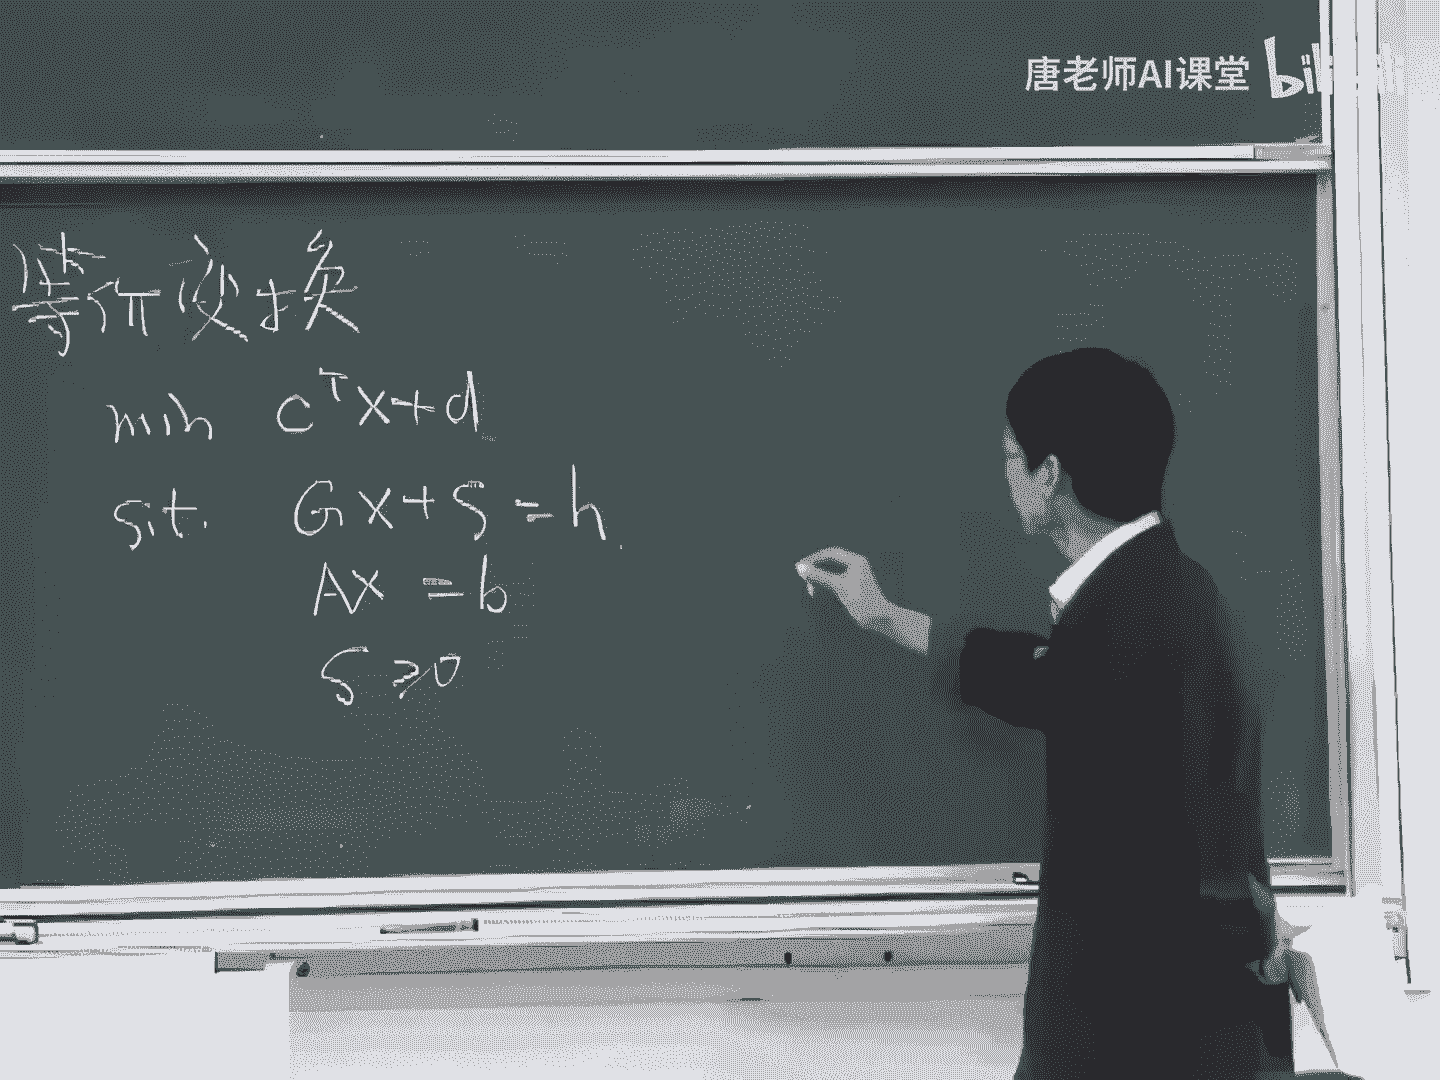 唐老师AI课堂 bili
等价变换
min cᵀx+d
s.t. Gx+s=h
Ax=b
s≥0